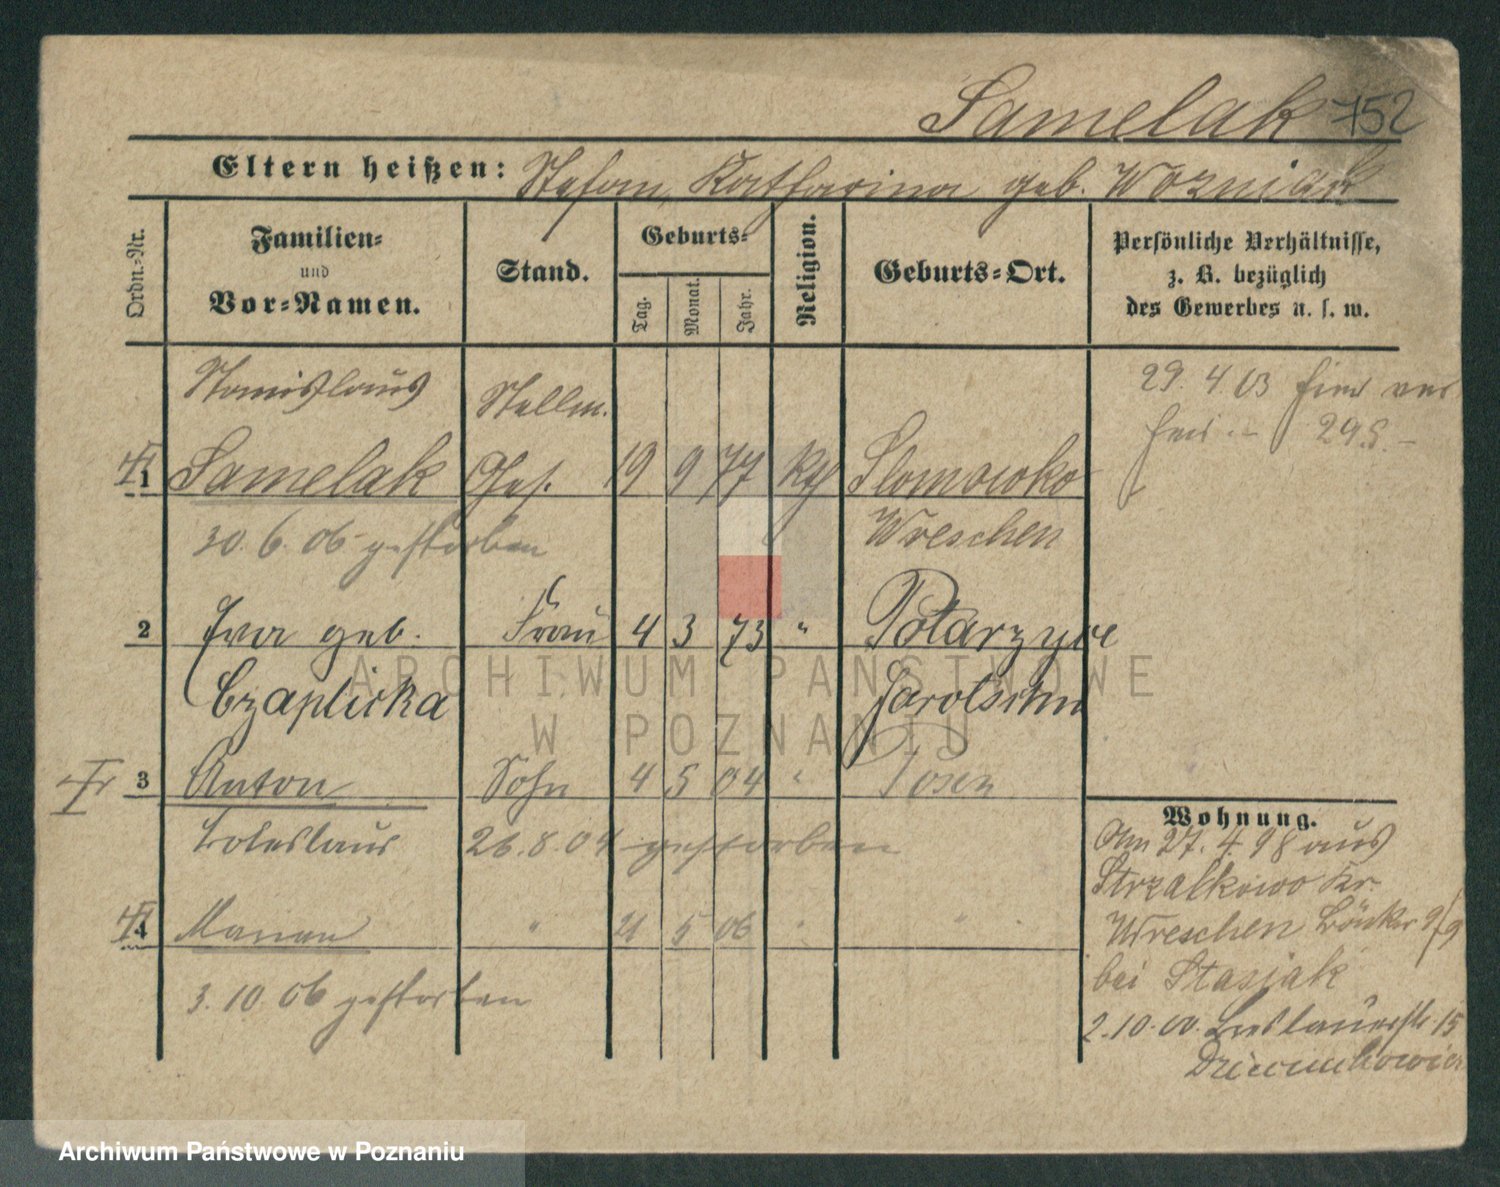 Samelak 752
Eltern heißen: Stefan, Katharina geb. Wozniak
Ordn.-Nr.
Familien- und Vor-Namen.
Stand.
Geburts-
Tag.
Monat.
Jahr.
Religion.
Geburts-Ort.
Persönliche Verhältnisse,
z. B. bezüglich
des Gewerbes u. s. w.
Stanislaus Stellm.
1 Samelak Ges. 19 9 77 kth Slomowko
Wreschen
29. 4. 03 hier ver
heir. 295
30. 6. 06 gestorben
2 Eva geb. Frau 4 3 73 " Potarzyce
Czaplicka Jarotschin
3 Anton Sohn 4 5 04 " Posen
Boleslaus 26. 8. 04 gestorben
4 Marian " 21 5 06 " "
3. 10. 06 gestorben
Wohnung.
Am 27. 4. 98 aus
Strzalkowo Kr.
Wreschen
bei Stasiak
2. 10. 00. Breslauerstr. 15
ARCHIWUM PAŃSTWOWE
W POZNANIU
Archiwum Państwowe w Poznaniu